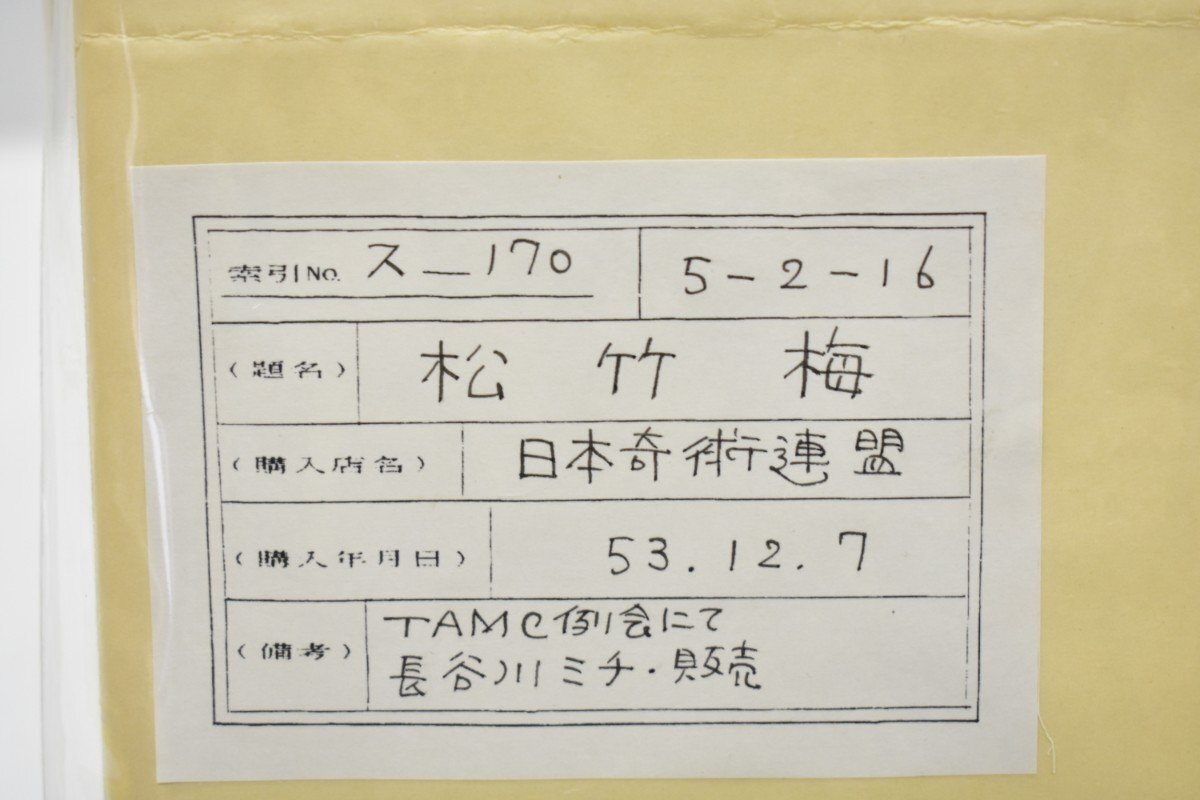 索引No. ス—170 5-2-16
(題名) 松 竹 梅
(購入店名) 日本奇術連盟
(購入年月日) 53.12.7
(備考) TAMC例会にて
長谷川ミチ・販売